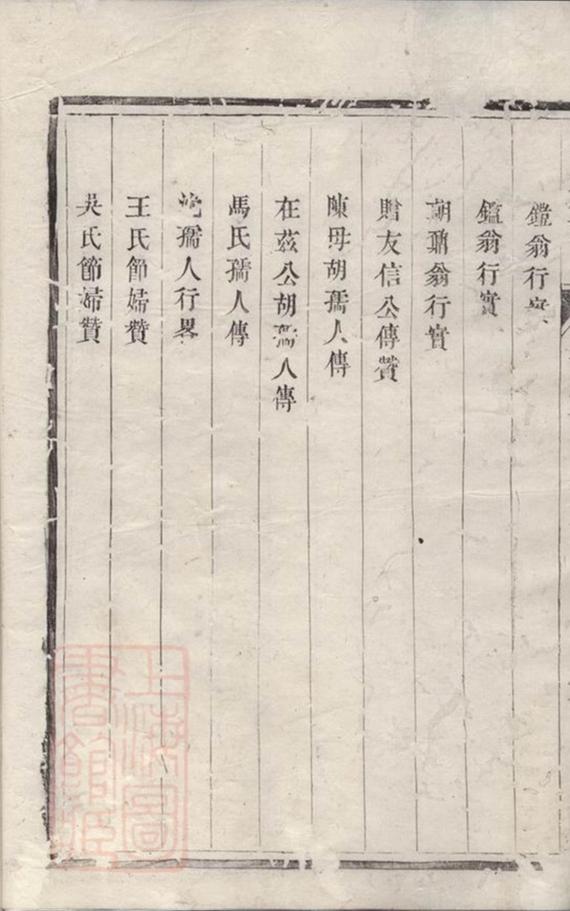 鐙翁行實
鑑翁行實
朝鼐翁行實
贈友信公傳贊
陳母胡孺人傳
在茲公胡孺人傳
馬氏孺人傳
孺人行畧
王氏節婦贊
吳氏節婦贊
上海圖
書館